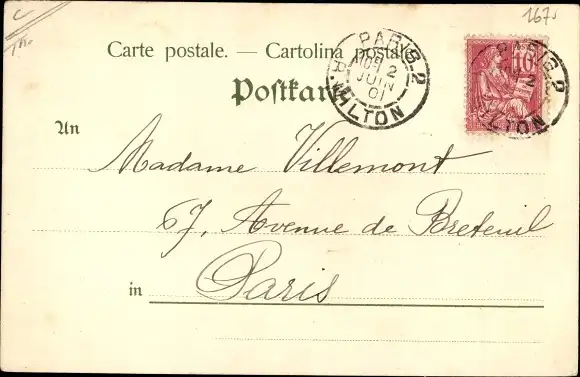 1675
Carte postale. — Cartolina postale
Postkar
PARIS 2
2
JUIN
01
R. MILTON
10
PARIS 2
2
MILTON
An Madame Villemont
67, Avenue de Breteuil
in Paris